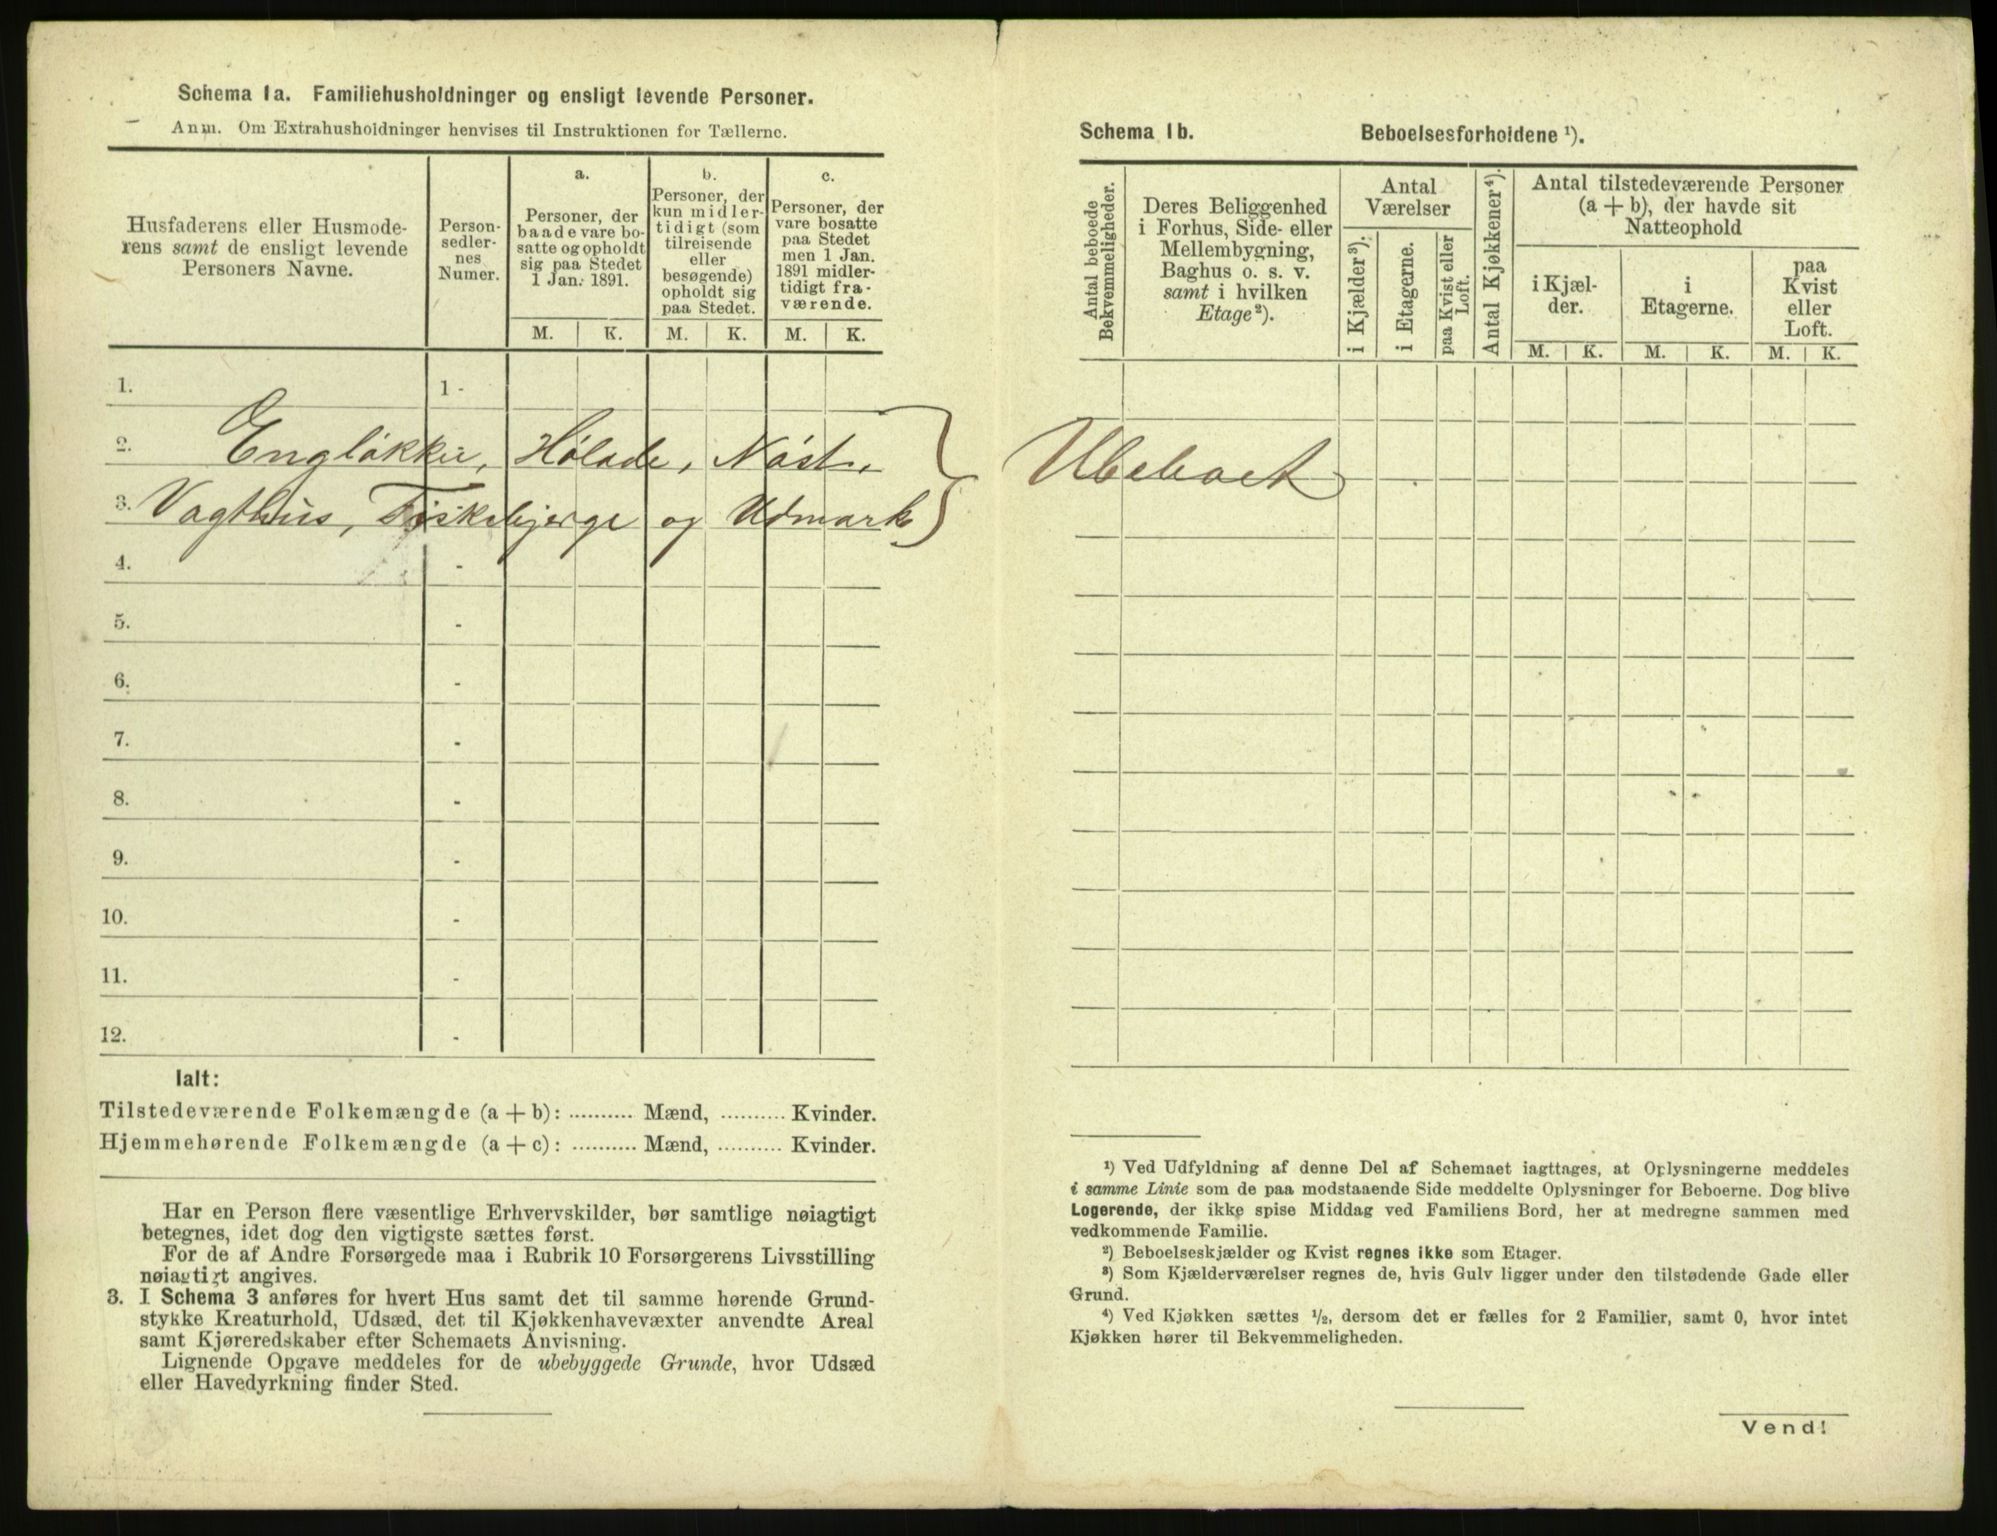 Schema 1a. Familiehusholdninger og ensligt levende Personer.
Anm. Om Extrahusholdninger henvises til Instruktionen for Tællerne.
Husfaderens eller Husmode-
rens samt de ensligt levende
Personers Navne.
Person-
sedler-
nes
Numer.
a.
Personer, der
baade vare bo-
satte og opholdt
sig paa Stedet
1 Jan. 1891.
b.
Personer, der
kun midler-
tidigt (som
tilreisende
eller
besøgende)
opholdt sig
paa Stedet.
c.
Personer, der
vare bosatte
paa Stedet
men 1 Jan.
1891 midler-
tidigt fra-
værende.
M. K. M. K. M. K.
1. 1 -
2. Engløkker, Hølade, Nøst,
3. Vagthus, Fiskebjerge og Udmark
4. -
5. -
6. -
7. -
8. -
9. -
10. -
11. -
12. -
Ialt:
Tilstedeværende Folkemængde (a + b): .......... Mænd, .......... Kvinder.
Hjemmehørende Folkemængde (a + c): .......... Mænd, .......... Kvinder.
Har en Person flere væsentlige Erhvervskilder, bør samtlige nøiagtigt
betegnes, idet dog den vigtigste sættes først.
For de af Andre Forsørgede maa i Rubrik 10 Forsørgerens Livsstilling
nøiagtigt angives.
3. I Schema 3 anføres for hvert Hus samt det til samme hørende Grund-
stykke Kreaturhold, Udsæd, det til Kjøkkenhavevæxter anvendte Areal
samt Kjøreredskaber efter Schemaets Anvisning.
Lignende Opgave meddeles for de ubebyggede Grunde, hvor Udsæd
eller Havedyrkning finder Sted.
Schema 1b. Beboelsesforholdene ¹).
Antal beboede
Bekvemmeligheder.
Deres Beliggenhed
i Forhus, Side- eller
Mellembygning,
Baghus o. s. v.
samt i hvilken
Etage²).
Antal
Værelser
i Kjælder³).
i Etagerne.
paa Kvist eller
Loft.
Antal Kjøkkener⁴).
Antal tilstedeværende Personer
(a + b), der havde sit
Natteophold
i Kjæl-
der.
i
Etagerne.
paa
Kvist
eller
Loft.
M. K. M. K. M. K.
Ubeboet
¹) Ved Udfyldning af denne Del af Schemaet iagttages, at Oplysningerne meddeles
i samme Linie som de paa modstaaende Side meddelte Oplysninger for Beboerne. Dog blive
Logerende, der ikke spise Middag ved Familiens Bord, her at medregne sammen med
vedkommende Familie.
²) Beboelseskjælder og Kvist regnes ikke som Etager.
³) Som Kjælderværelser regnes de, hvis Gulv ligger under den tilstødende Gade eller
Grund.
⁴) Ved Kjøkken sættes ½, dersom det er fælles for 2 Familier, samt 0, hvor intet
Kjøkken hører til Bekvemmeligheden.
Vend!